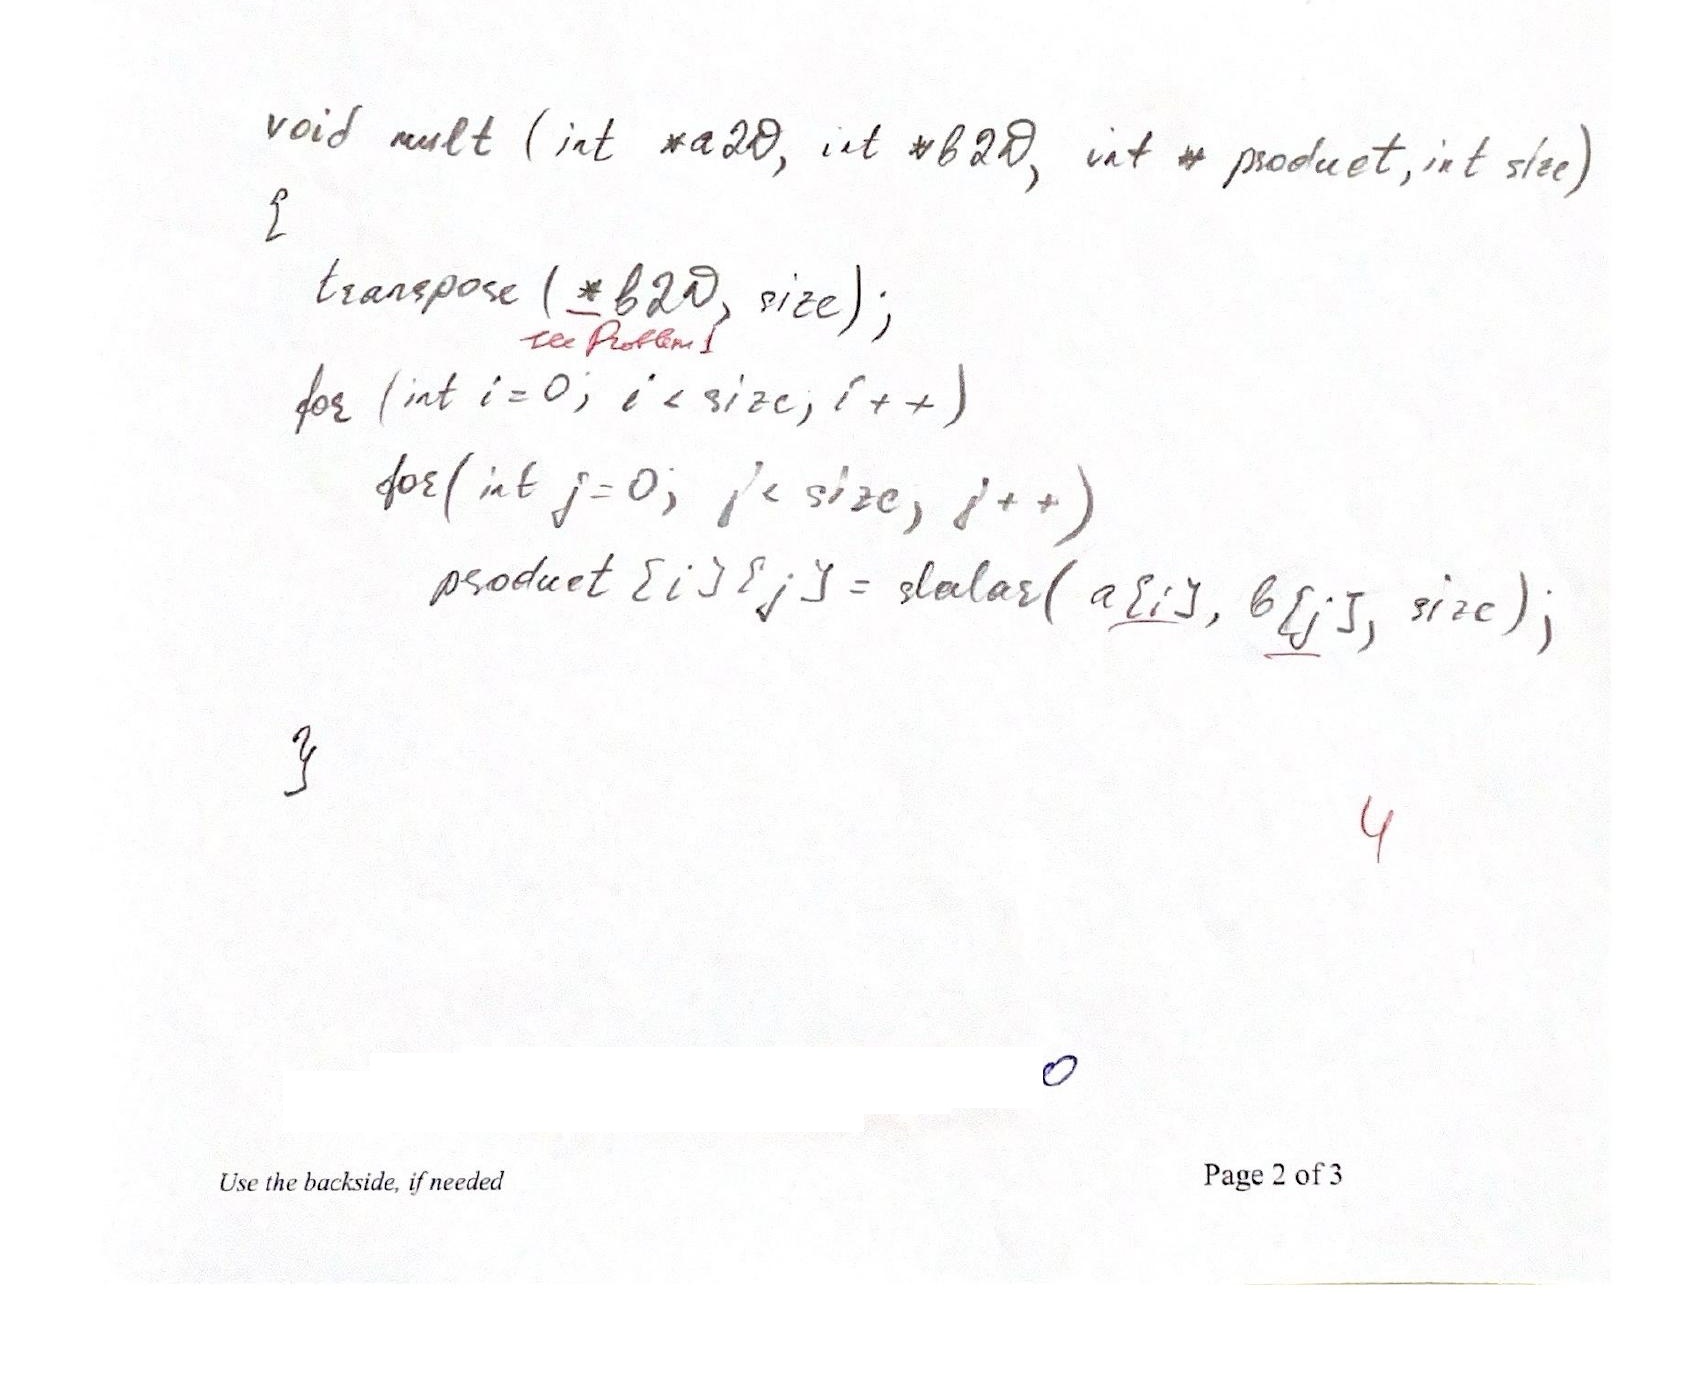 void mult (int *a2D, int *b2D, int * product, int size)
{
transpose (*b2D, size);
see Problem 1
for (int i=0; i < size; i++)
for (int j=0; j < size; j++)
product [i][j] = slalar( a[i], b[j], size);
}
4
0
Use the backside, if needed
Page 2 of 3